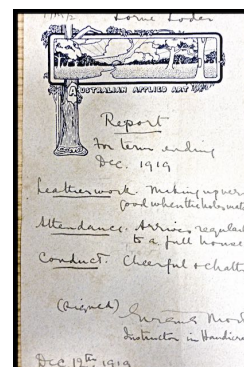 AUSTRALIAN APPLIED ART
Report
For term ending
Dec. 1919
Leatherwork. Making up very
good when the holes
Attendance. Arrives regular
to a full house
Conduct. Cheerful & chatt
(signed)
Instructor in Handicra
Dec 12th 1919